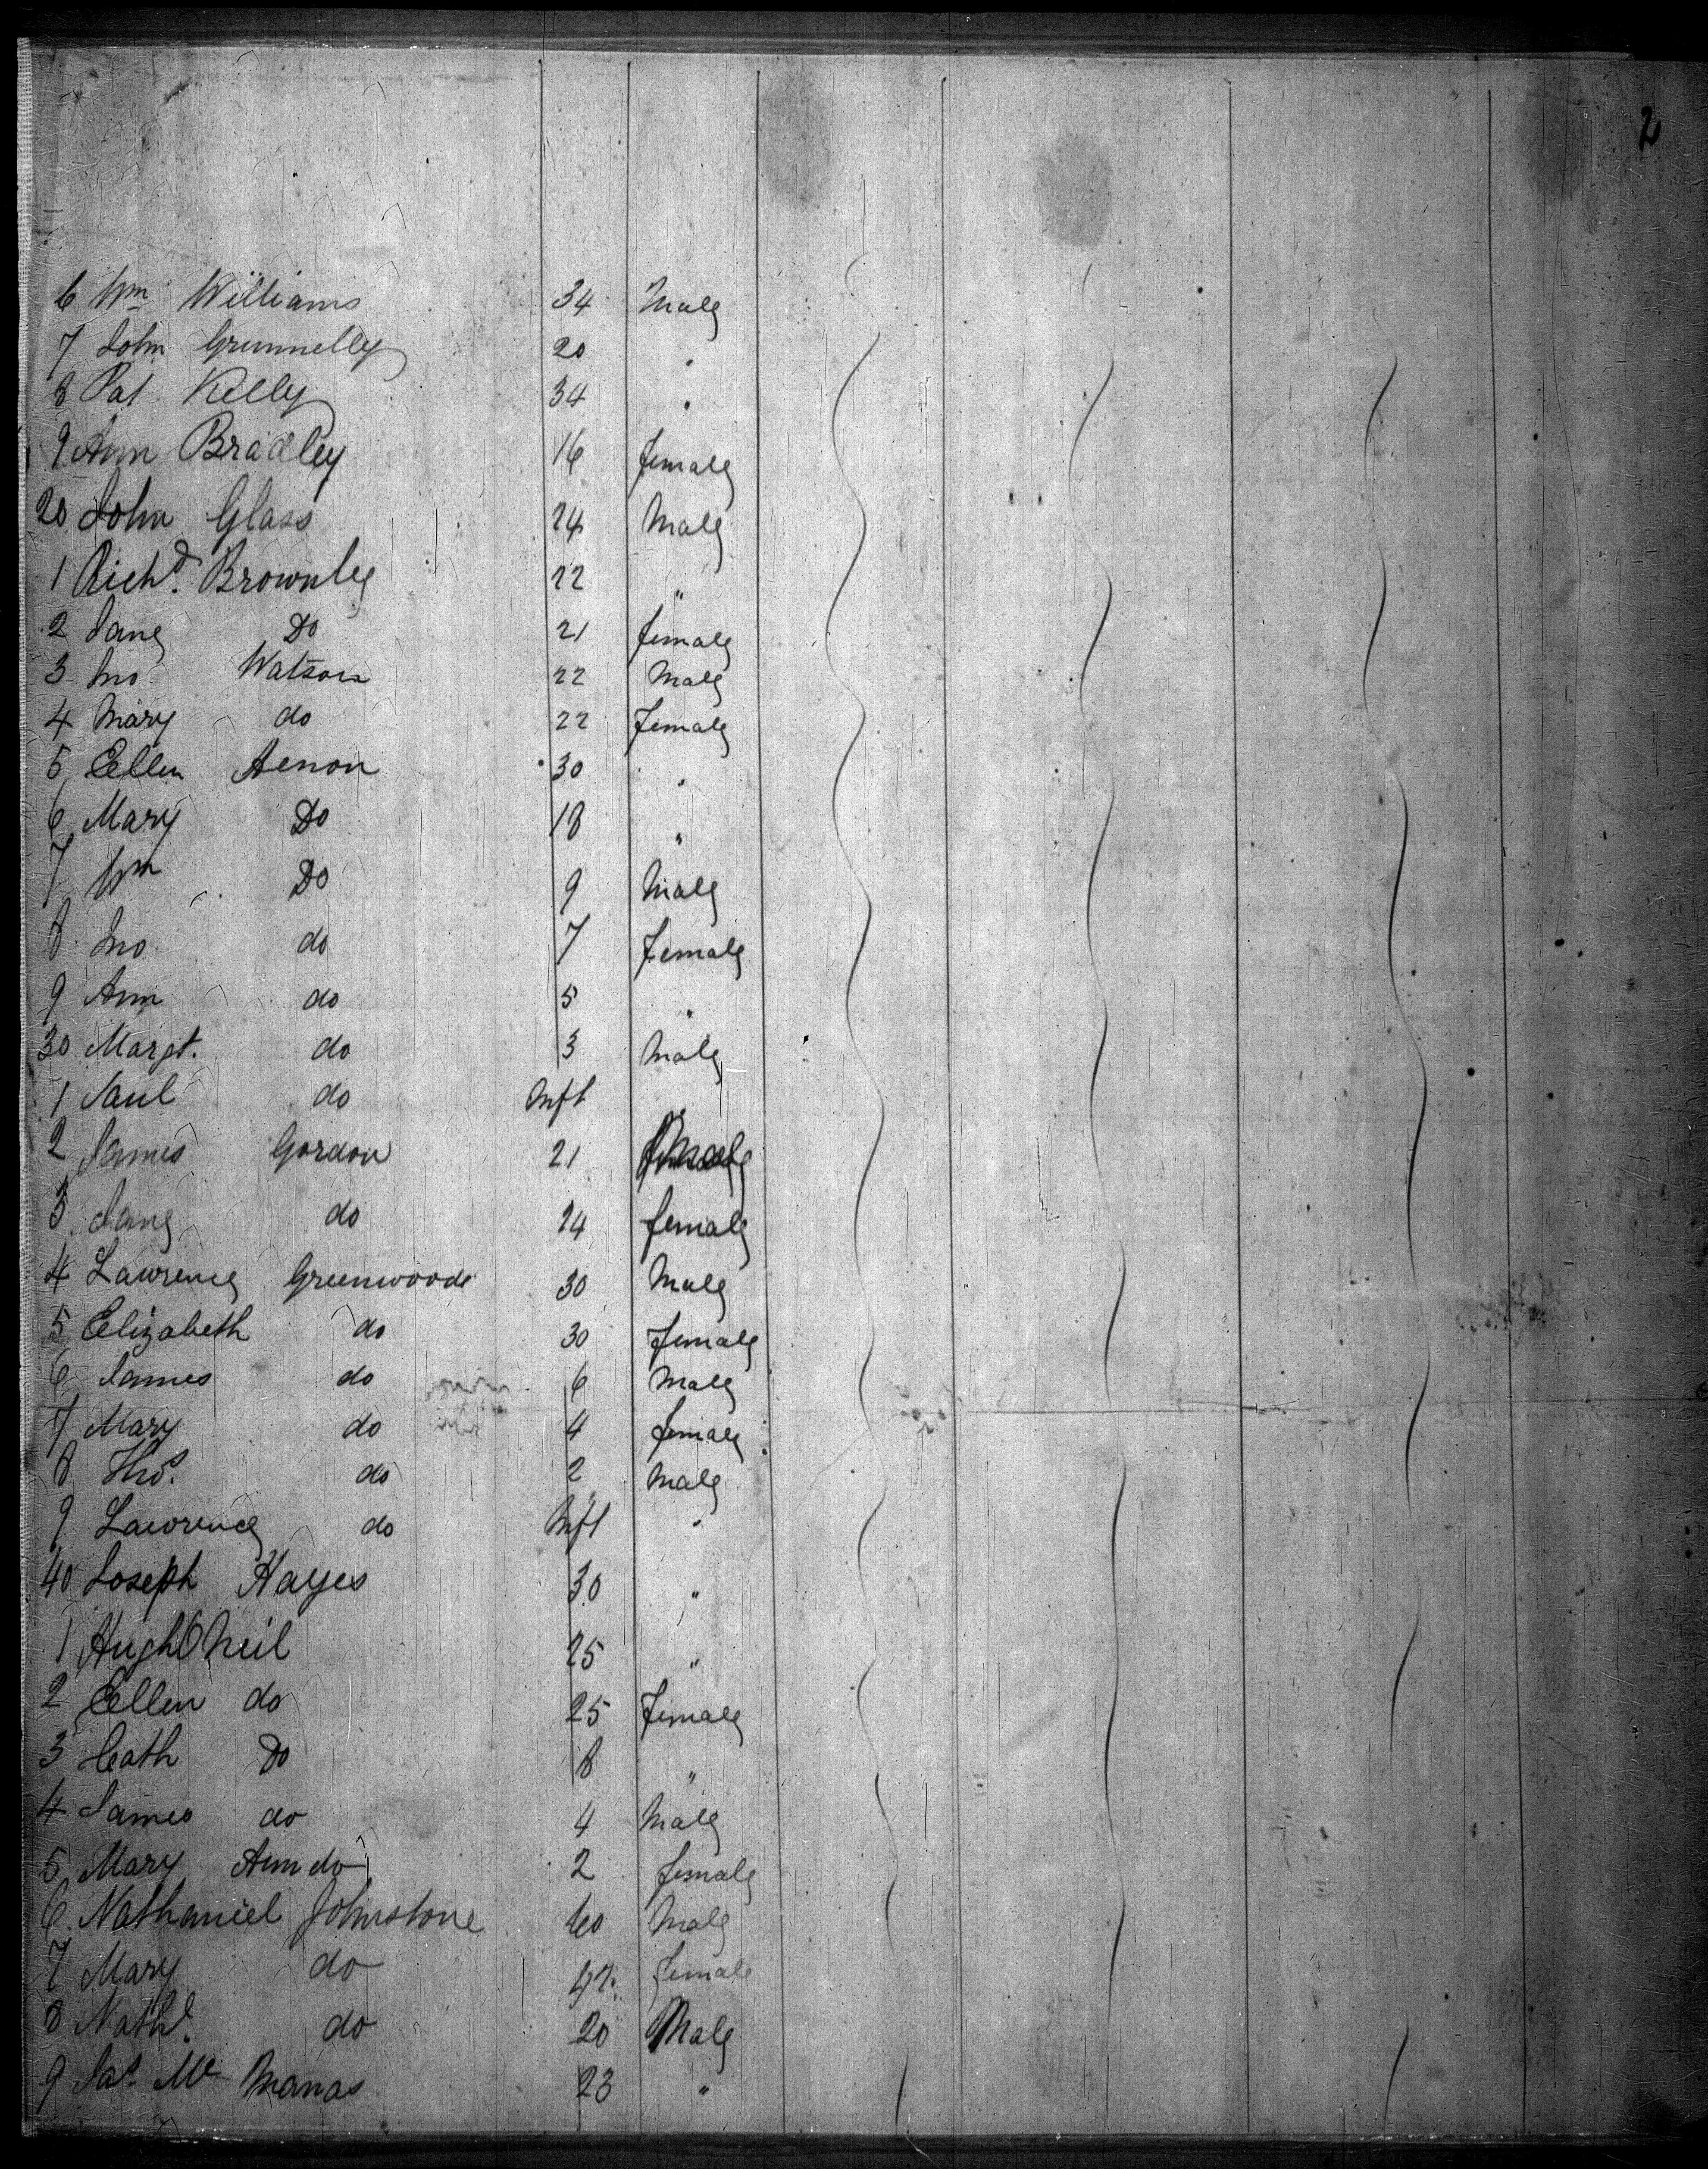 2
6 Wm Williams 34 Male
7 John Grunnelly 20 "
8 Pat Kelly 34 "
9 Ann Bradley 16 female
20 John Glass 24 Male
1 Richd. Brownley 22 "
2 Jane Do 21 female
3 Jno Watson 22 Male
4 Mary do 22 female
5 Ellen Aenon 30 "
6 Mary Do 18 "
7 Wm Do 9 Male
8 Jno do 7 Female
9 Ann do 5 "
30 Margt. do 3 Male
1 Saul do Inft "
2 James Gordon 21
3 Jane do 24 female
4 Lawrence Greenwoode 30 Male
5 Elizabeth do 30 female
6 James do 6 Male
7 Mary do 4 female
8 Thos. do 2 Male
9 Lawrence do Inft "
40 Joseph Hayes 30 "
1 Hugh O Neil 25 "
2 Ellen do 25 Female
3 Cath Do 8 "
4 James do 4 Male
5 Mary Ann do 2 female
6 Nathaniel Johnstone 60 Male
7 Mary do female
8 Nathl. do 20 Male
9 Jas. Mc Manas 23 "